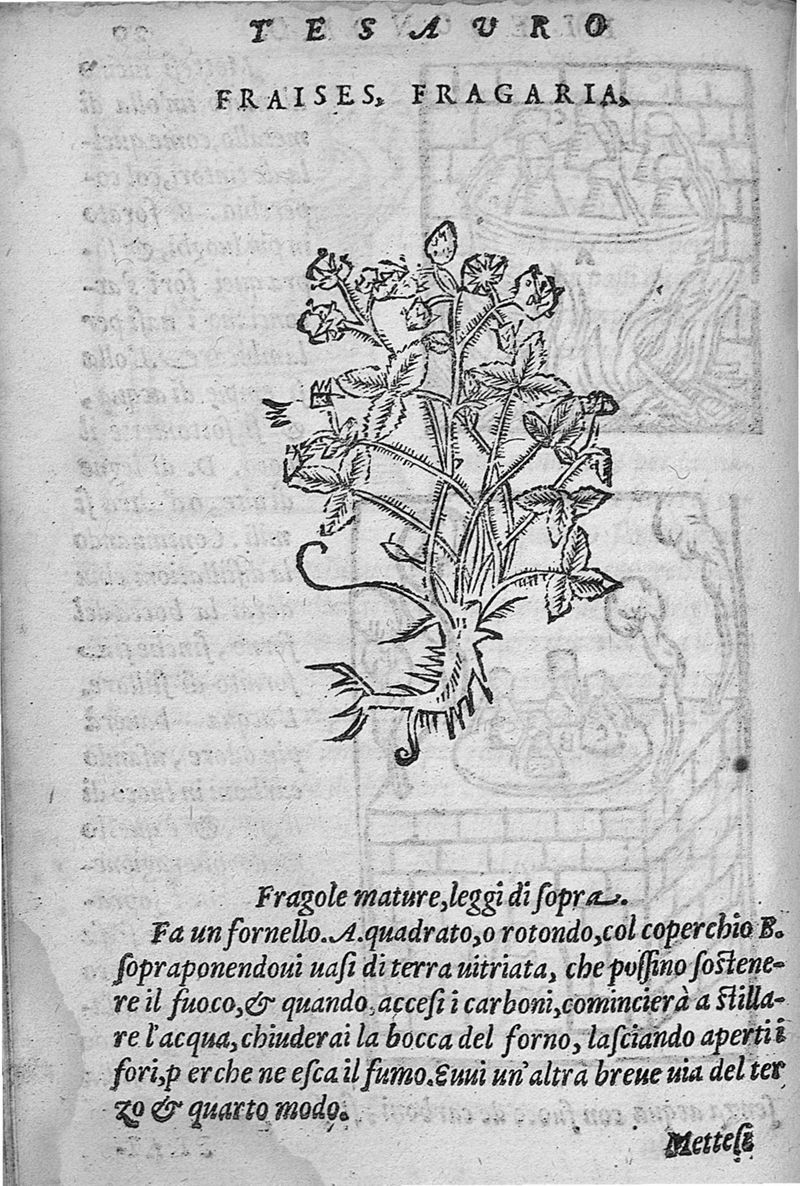 TESAURO
FRAISES, FRAGARIA,
Fragole mature, leggi di ſopra.
Fa un fornello. A. quadrato, o rotondo, col coperchio B.
ſopraponendoui uaſi di terra uitriata, che poſſino ſoſtene-
re il fuoco, & quando, acceſi i carboni, comincierà a ſtilla-
re l'acqua, chiuderai la bocca del forno, laſciando aperti i
fori, p erche ne eſca il fumo. Euui un'altra breue uia del ter
zo & quarto modo.
Metteſi